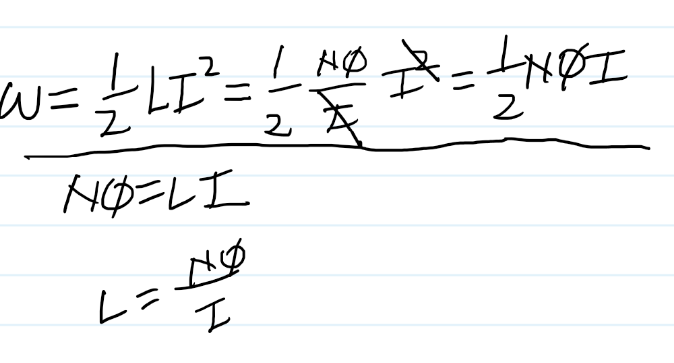 W = 1/2 LI² = 1/2 NΦ/I I² = 1/2 NΦI
NΦ = LI
L = NΦ/I